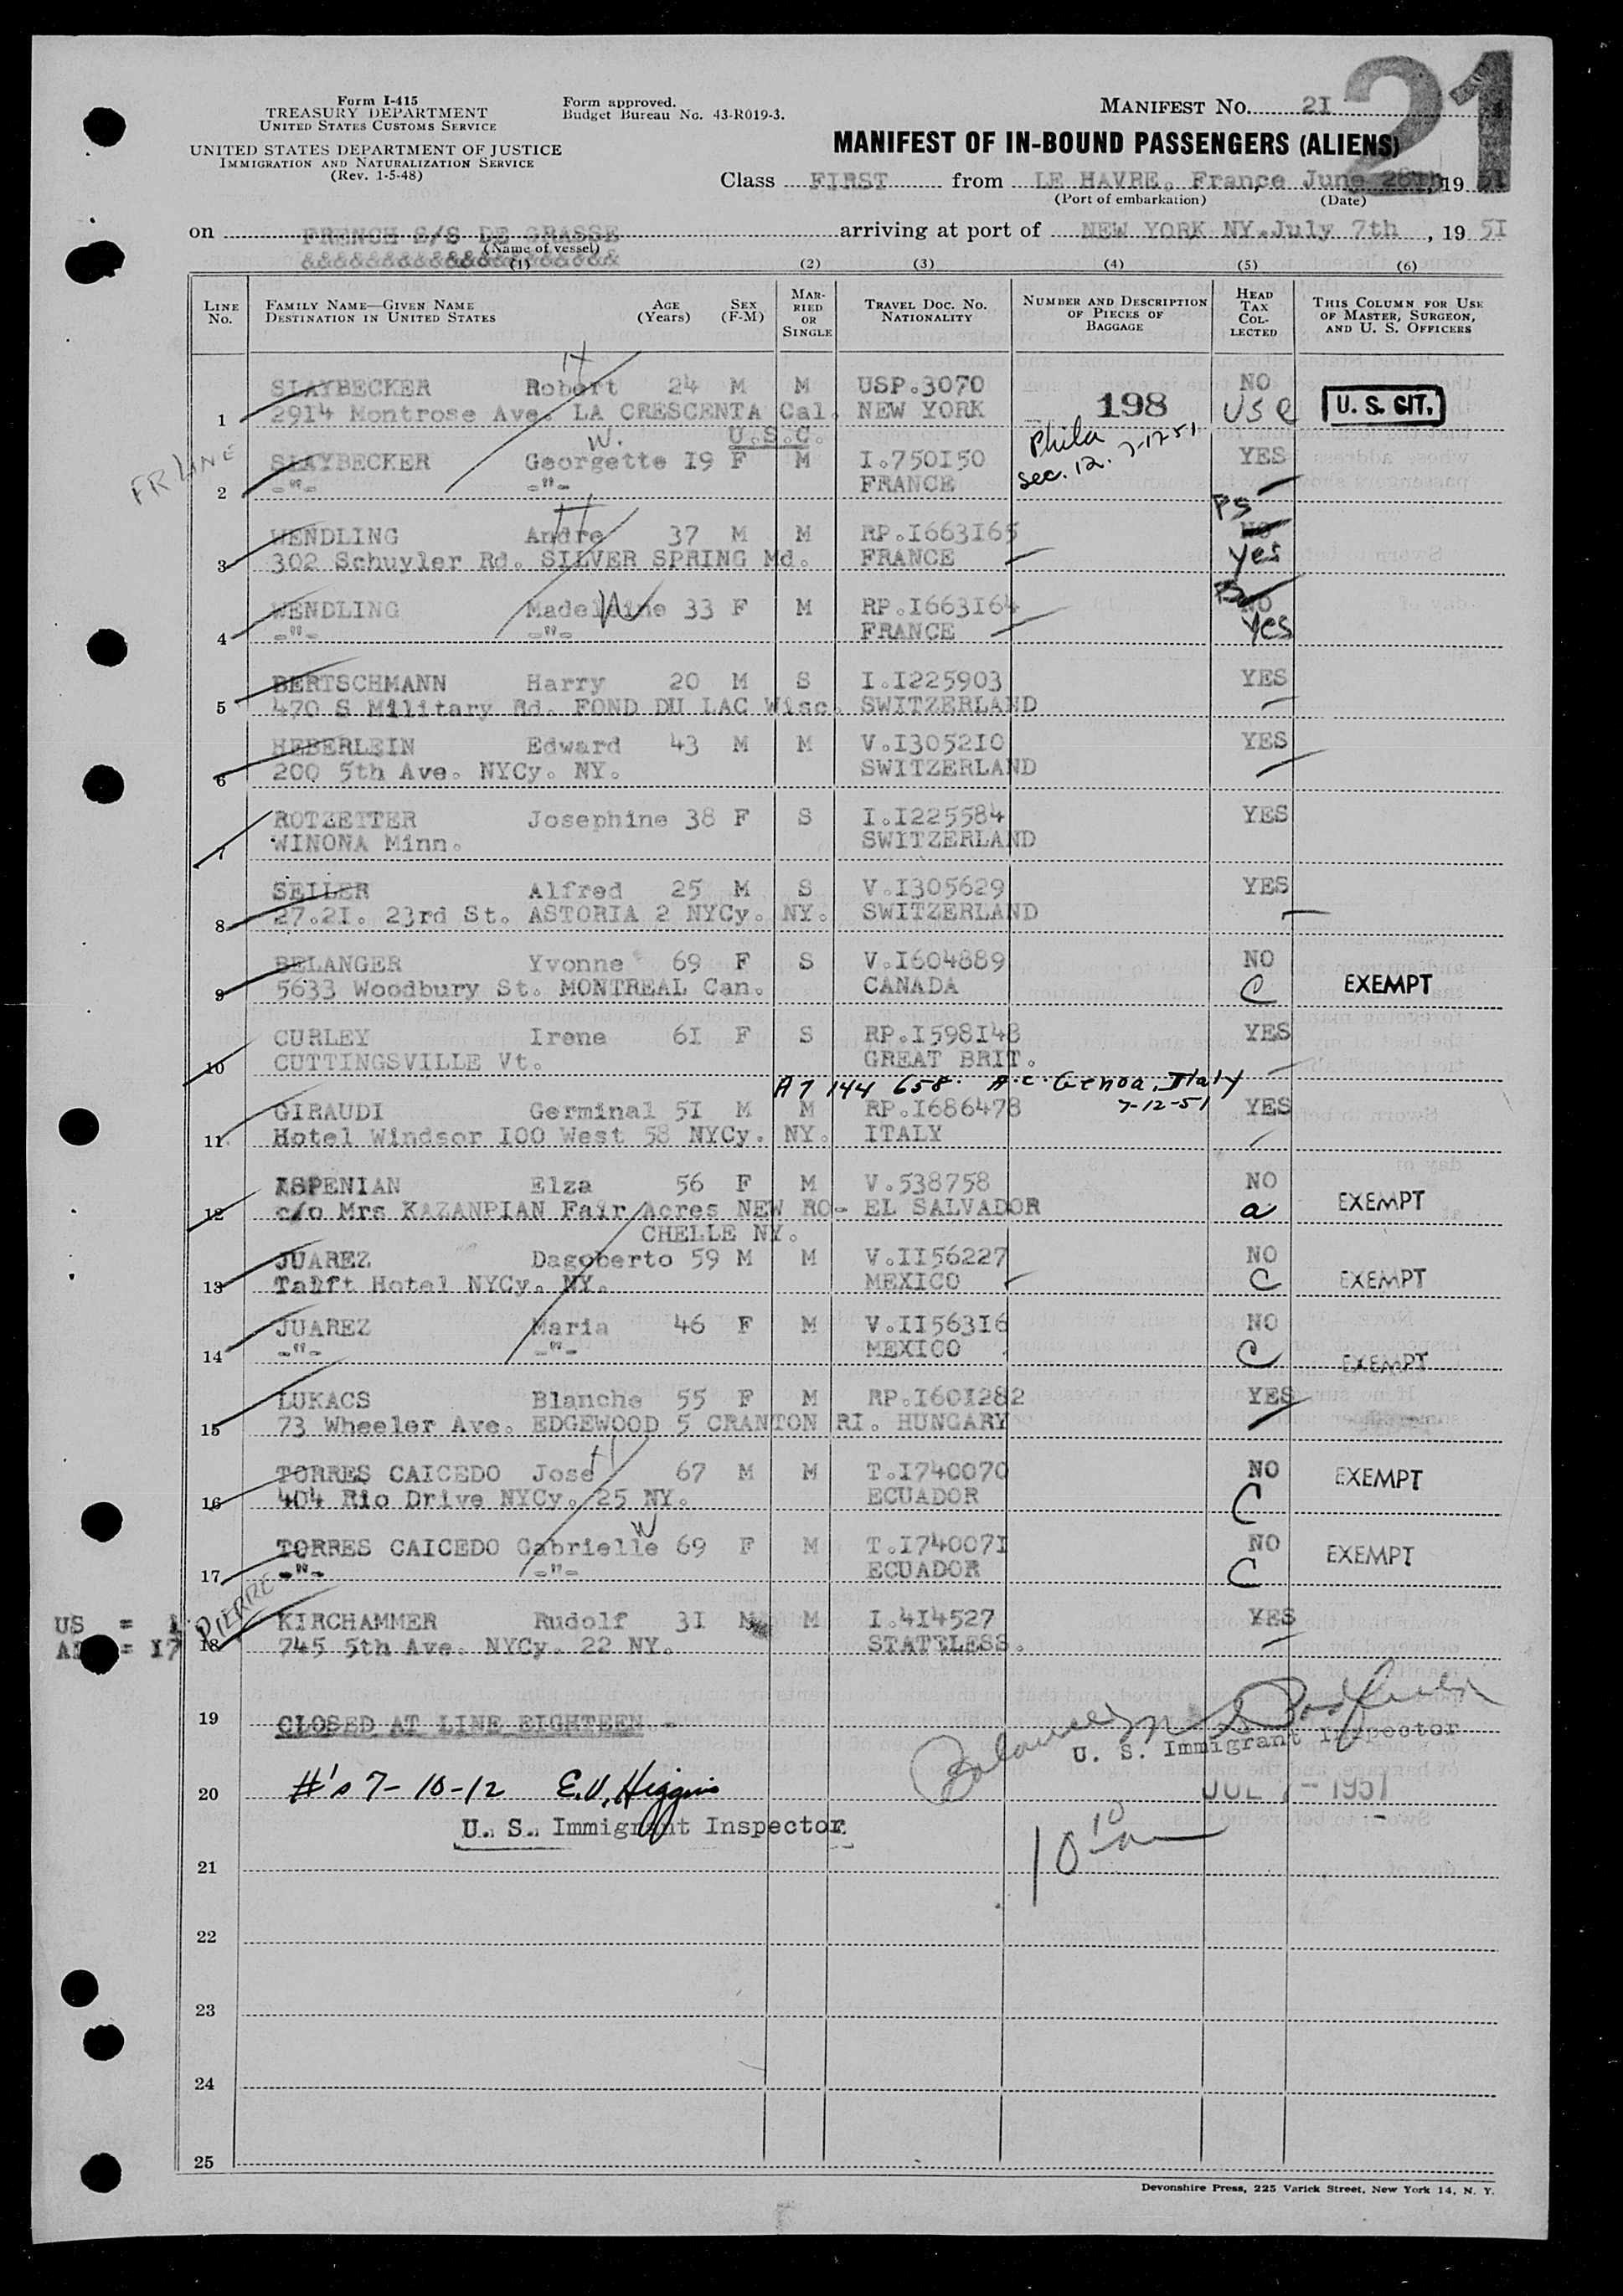 21
Form I-415
TREASURY DEPARTMENT
UNITED STATES CUSTOMS SERVICE
UNITED STATES DEPARTMENT OF JUSTICE
IMMIGRATION AND NATURALIZATION SERVICE
(Rev. 1-5-48)
Form approved.
Budget Bureau No. 43-R019-3.
MANIFEST NO. 2I
MANIFEST OF IN-BOUND PASSENGERS (ALIENS)
Class FIRST from LE HAVRE. France, June 28th, 19 5I
(Port of embarkation) (Date)
on FRENCH S/S DE GRASSE arriving at port of NEW YORK NY. July 7th, 19 5I
(Name of vessel)
&&&&&&&&&&&&&&&&&&&&
(1) (2) (3) (4) (5) (6)
LINE No. FAMILY NAME—GIVEN NAME DESTINATION IN UNITED STATES AGE (Years) SEX (F-M) MARRIED OR SINGLE TRAVEL DOC. NO. NATIONALITY NUMBER AND DESCRIPTION OF PIECES OF BAGGAGE HEAD TAX COLLECTED THIS COLUMN FOR USE OF MASTER, SURGEON, AND U. S. OFFICERS
H
SLAYBECKER Robert 24 M M USP.3070 NO
1 2914 Montrose Ave. LA CRESCENTA Cal. NEW YORK 198 USC U. S. CIT.
W. U.S.C. Phila 7-12-51
FR LINE SLAYBECKER Georgette I9 F M I.750I50 sec. 12. YES
2 -"- -"- FRANCE
H PS
WENDLING Andre 37 M M RP.I663I65 NO
3 302 Schuyler Rd. SILVER SPRING Md. FRANCE Yes
WENDLING Madeleine W 33 F M RP.I663I64 NO
4 -"- -"- FRANCE Yes
BERTSCHMANN Harry 20 M S I.I225903 YES
5 470 S Military Rd. FOND DU LAC Wisc. SWITZERLAND
HEBERLEIN Edward 43 M M V.I3052I0 YES
6 200 5th Ave. NYCy. NY. SWITZERLAND
ROTZETTER Josephine 38 F S I.I225584 YES
7 WINONA Minn. SWITZERLAND
SEILER Alfred 25 M S V.I305629 YES
8 27.2I. 23rd St. ASTORIA 2 NYCy. NY. SWITZERLAND
BELANGER Yvonne 69 F S V.I604889 NO
9 5633 Woodbury St. MONTREAL Can. CANADA C EXEMPT
CURLEY Irene 6I F S RP.I598I48 YES
10 CUTTINGSVILLE Vt. GREAT BRIT.
A7 144 658. A.C. Genoa, Italy
7-12-51
GIRAUDI Germinal 5I M M RP.I686478 YES
11 Hotel Windsor I00 West 58 NYCy. NY. ITALY
ASPENIAN Elza 56 F M V.538758 NO
12 c/o Mrs KAZANPIAN Fair Acres NEW RO- EL SALVADOR a EXEMPT
CHELLE NY.
JUAREZ Dagoberto 59 M M V.II56227 NO
13 Taft Hotel NYCy. NY. MEXICO C EXEMPT
JUAREZ Maria 46 F M V.II563I6 NO
14 -"- -"- MEXICO C EXEMPT
LUKACS Blanche 55 F M RP.I60I282 YES
15 73 Wheeler Ave. EDGEWOOD 5 CRANTON RI. HUNGARY
H
TORRES CAICEDO José 67 M M T.I740070 NO EXEMPT
16 404 Rio Drive NYCy. 25 NY. ECUADOR C
W
TORRES CAICEDO Gabrielle 69 F M T.I74007I NO EXEMPT
17 -"- -"- ECUADOR C
PIERRE
US = 1 KIRCHAMMER Rudolf 3I M M I.4I4527 YES
= I7 18 745 5th Ave. NYCy. 22 NY. STATELESS.
19 CLOSED AT LINE EIGHTEEN -
Balance
U. S. Immigrant Inspector
20 #'s 7-10-12 E.V. Higgins JUL 7 - 1951
U. S. Immigrant Inspector
10 10 am
21
22
23
24
25
Devonshire Press, 225 Varick Street, New York 14, N. Y.